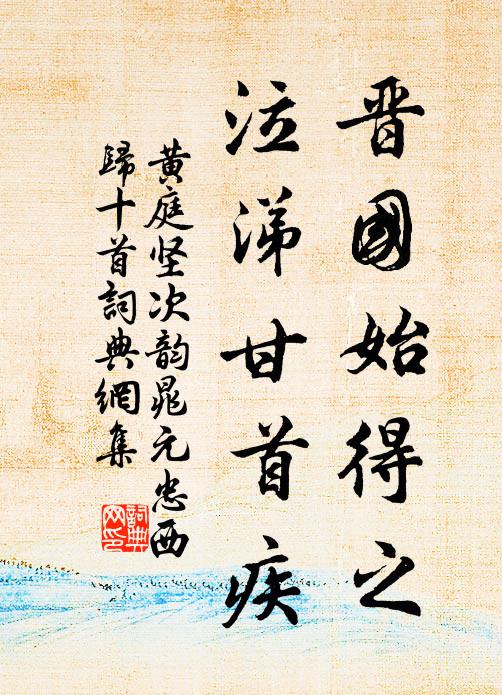 晋國始得之
泣涕甘首疾
黄庭坚次韵晁元忠西
歸十首詞典網集
詞典
网印